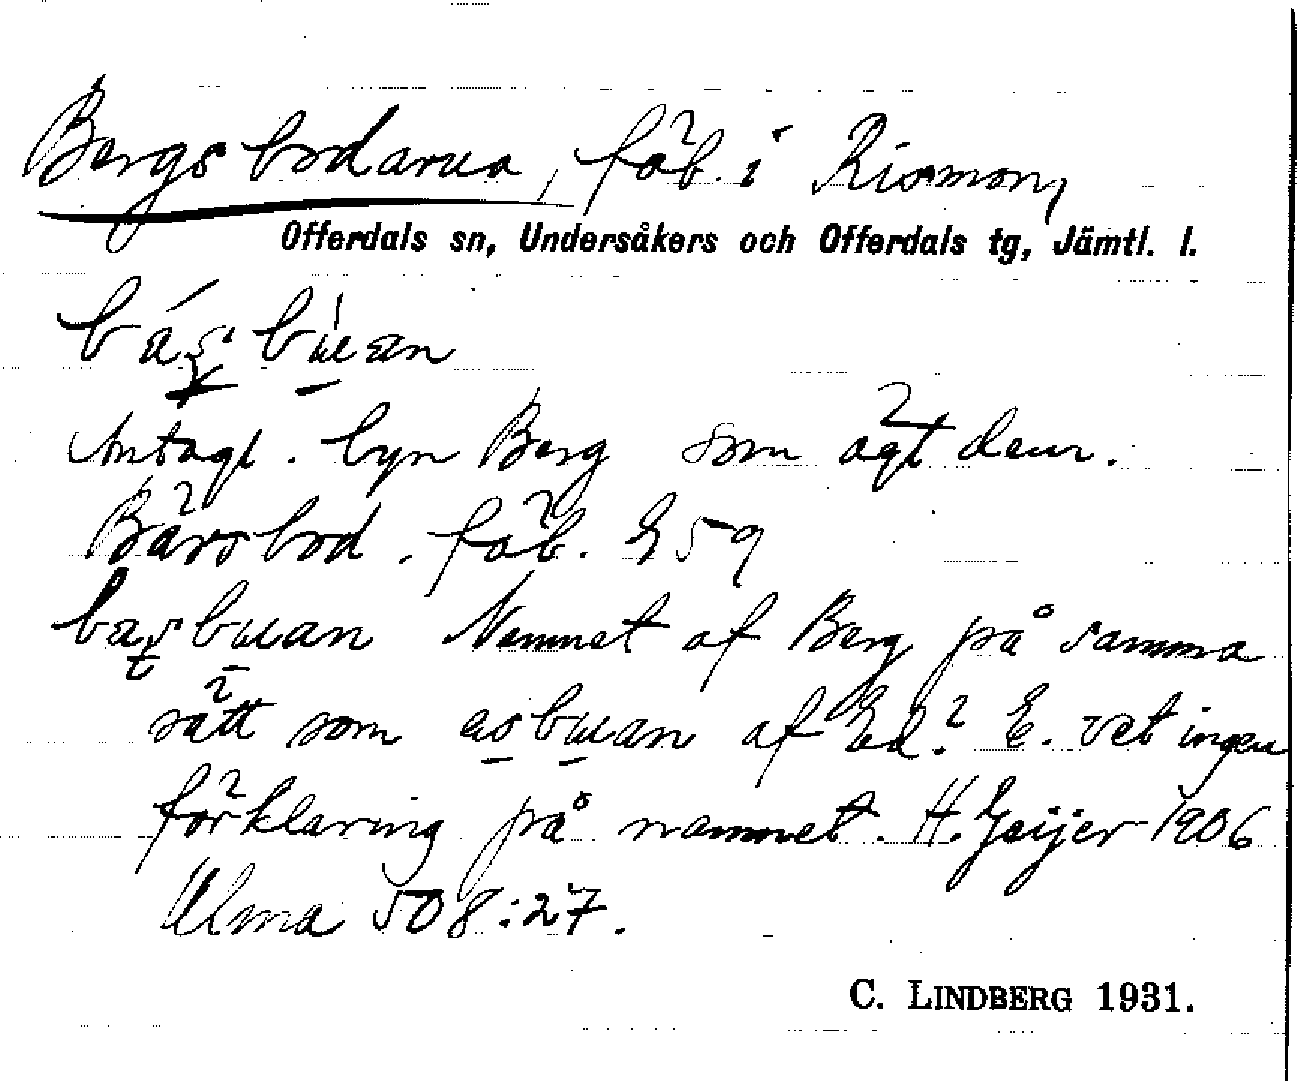 Bergsbodarna, fäb. i Rismon,
Offerdals sn, Undersåkers och Offerdals tg, Jämtl. l.
Antagl. byn Berg som ägt dem.
Bärsbod. fäb. E 59
Namnet af Berg på samma
sätt som asbuan af Ed? E. vet ingen
förklaring på namnet. H. Geijer 1906
Ulma 508:27.
C. LINDBERG 1931.